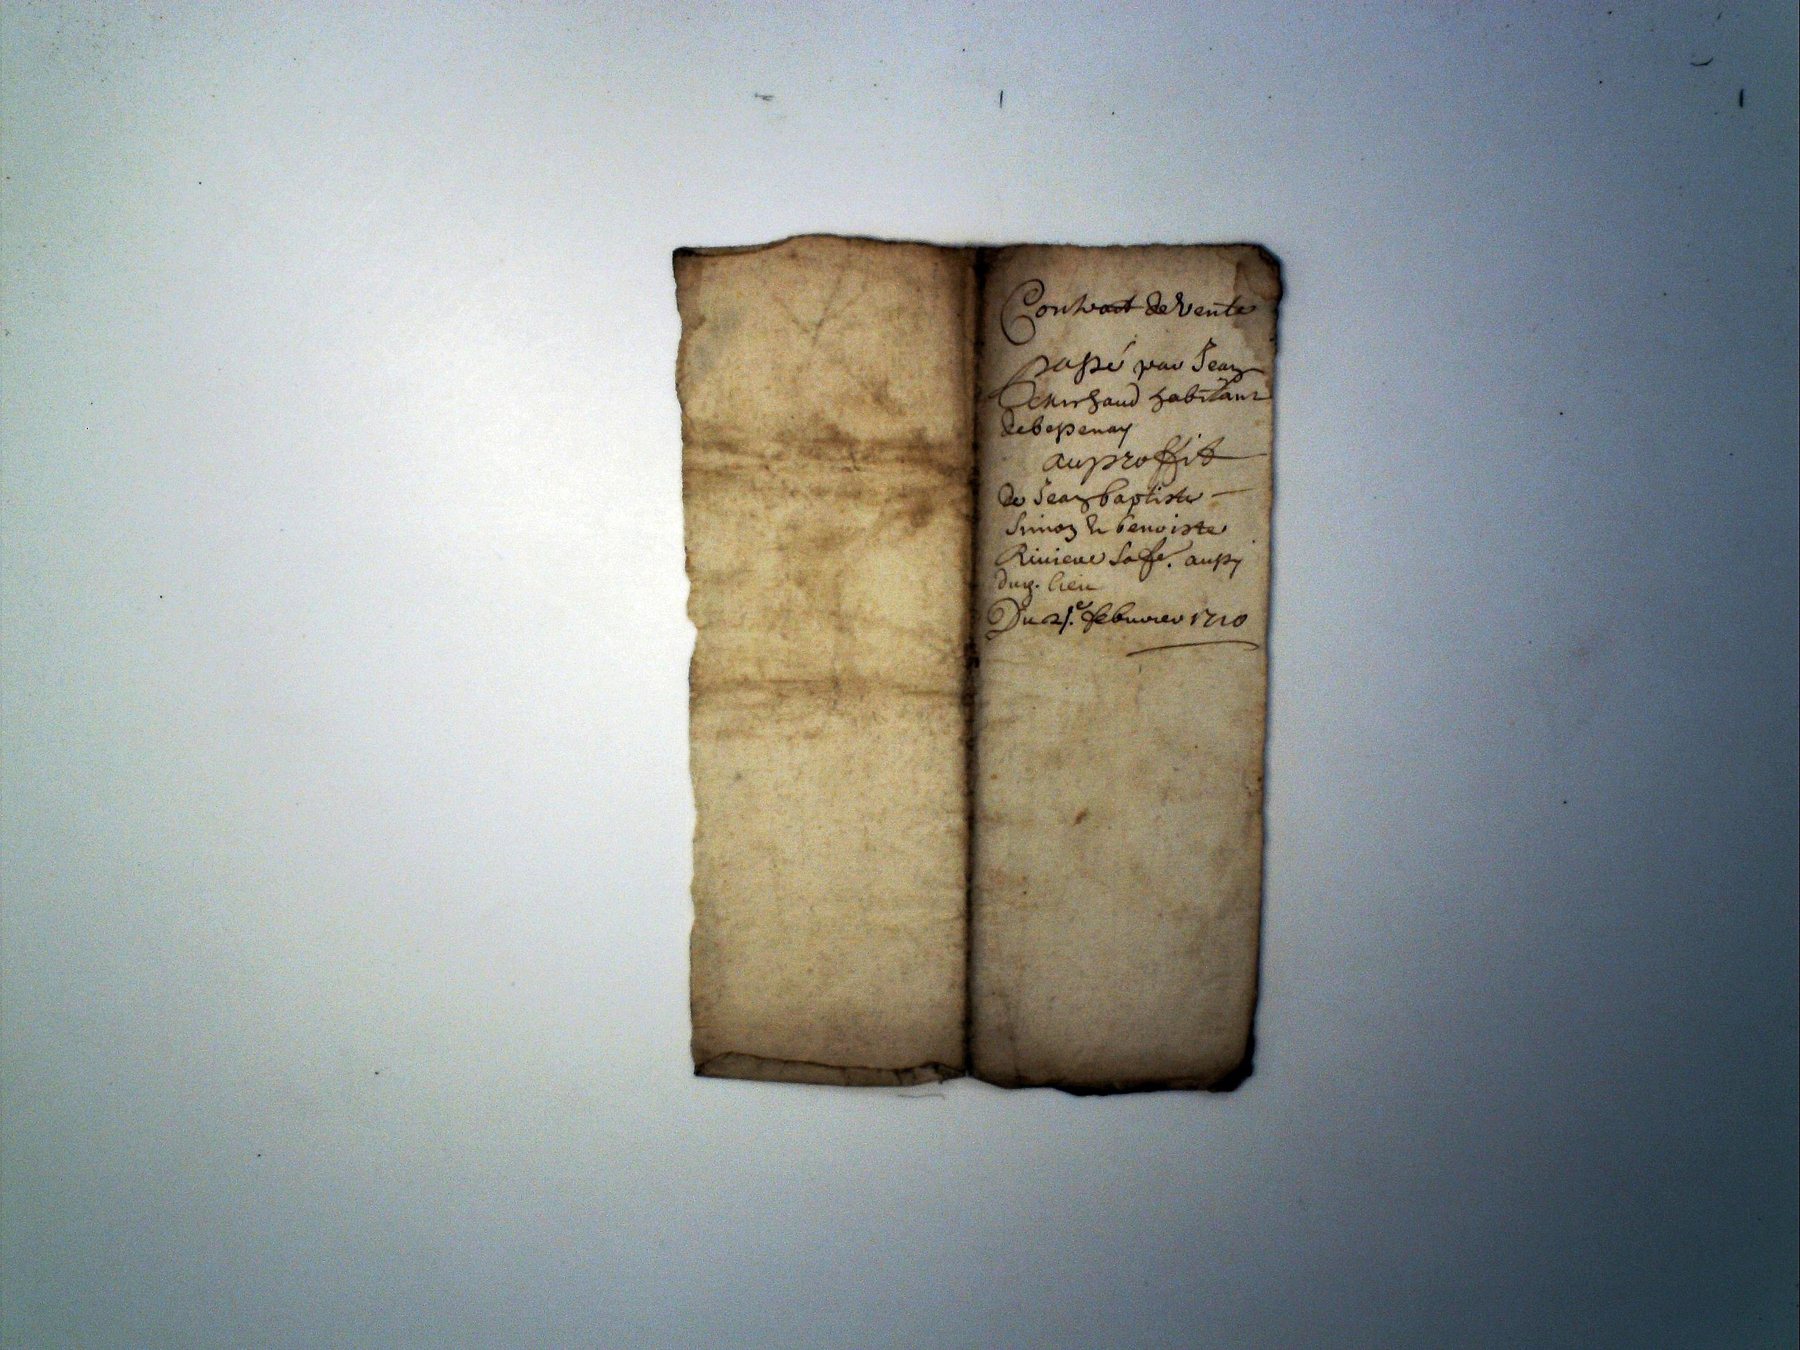 Contract de Vente
passé par Jean
habitant
de
au proffit
de Jean baptiste
Simon & benoiste
Riuiere Sa fe. aussy
dud. lieu
Du 21.e februrier 1710